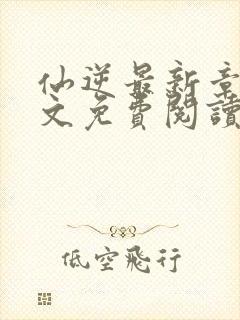 仙逆最新章
文免費閱讀
低空飛行